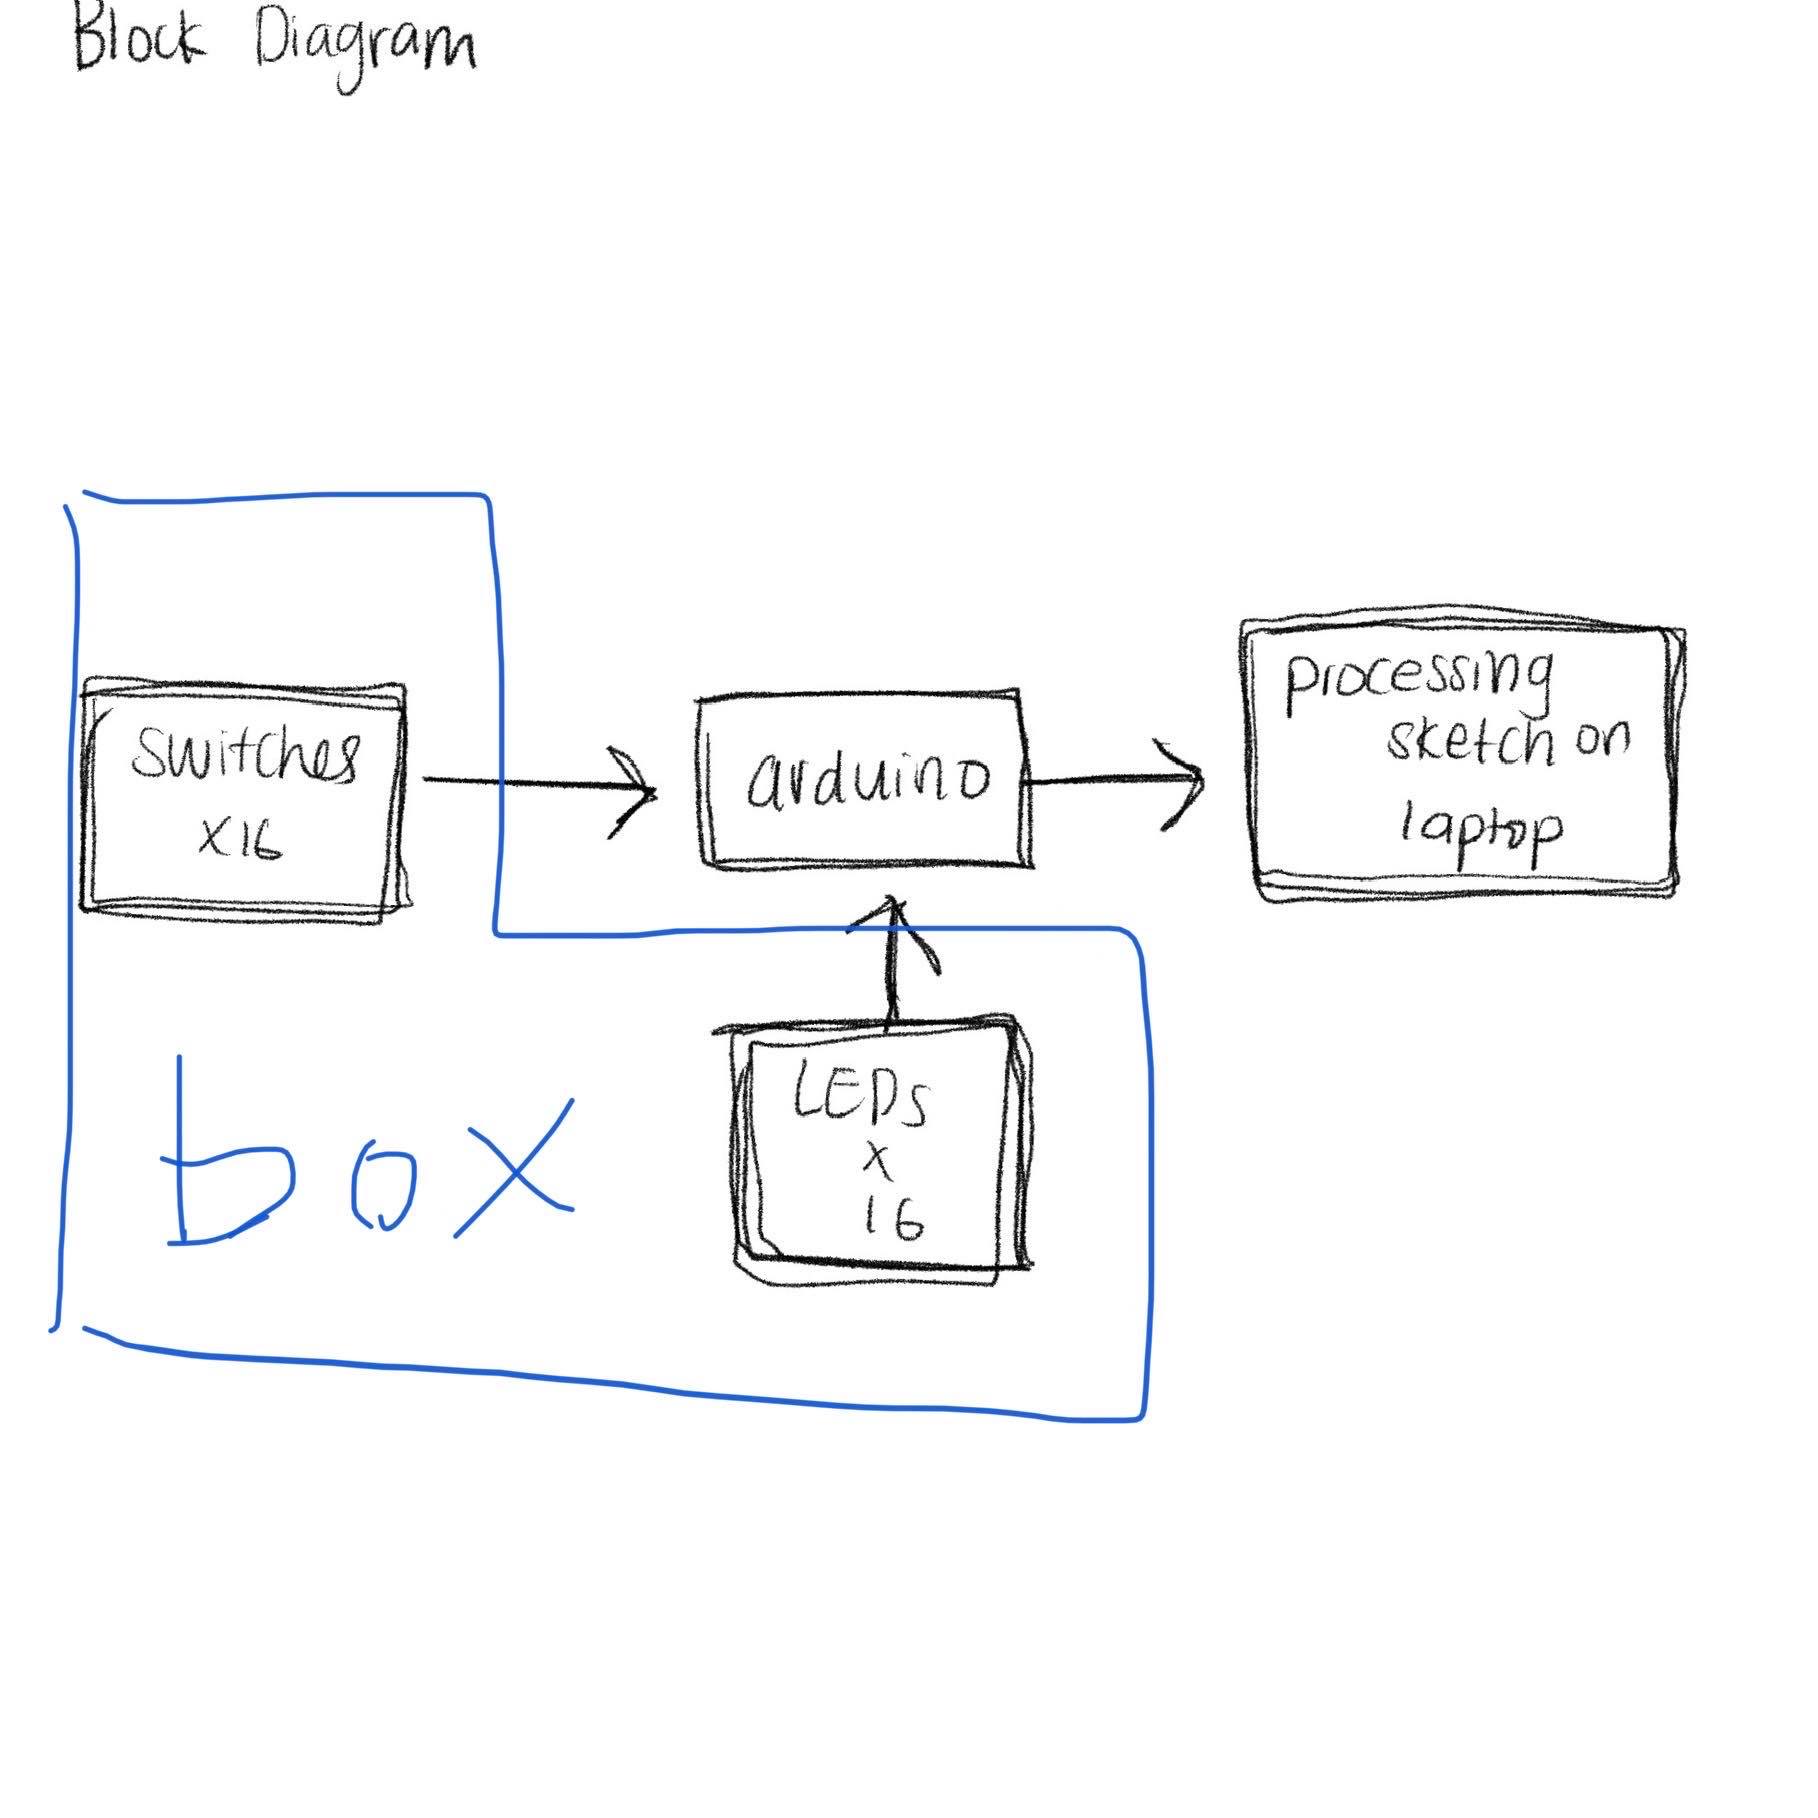 Block Diagram
switches
x16
arduino
processing
sketch on
laptop
LEDs
x
16
box